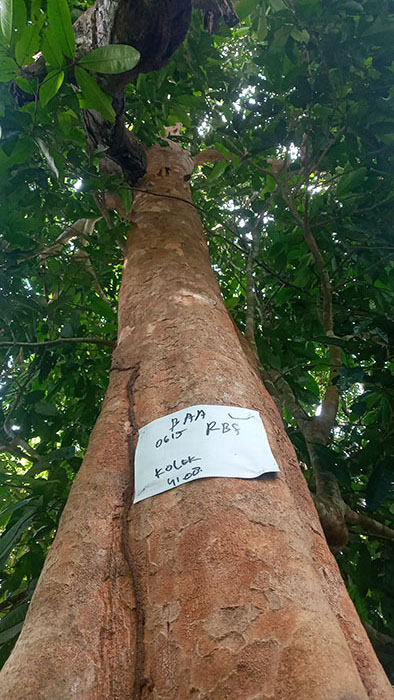 BAA
0615 RBS
KOLEK
41.00